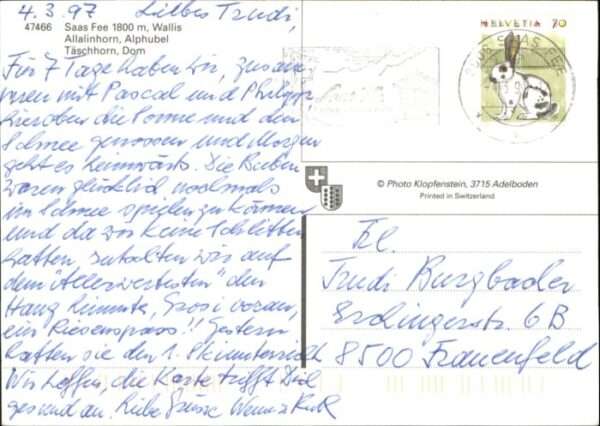 4.3.97 Liebes Trudi,
47466 Saas Fee 1800 m, Wallis
Allalinhorn, Alphubel
Täschhorn, Dom
Für 7 Tage haben wir, zusam
men mit Pascal und Philipp
hieroben die Sonne und den
Schnee genossen und Morgen
geht es heimwärts. Die Buben
waren glücklich nochmals
im Schnee spielen zu können
und da wir keine Schlitten
hatten, rutschten wir auf
dem "Allerwertesten" den
Hang hinunter, Grosi voran,
ein Riesenspass!! Gestern
hatten sie den 1. Skiunterricht
Wir hoffen, die Karte trifft Dich
gesund an. Liebe Grüsse Werner
HELVETIA 70
SAAS-FEE
© Photo Klopfenstein, 3715 Adelboden
Printed in Switzerland
Frl.
Trudi Burgbacher
Erchingerstr. 6B
8500 Frauenfeld